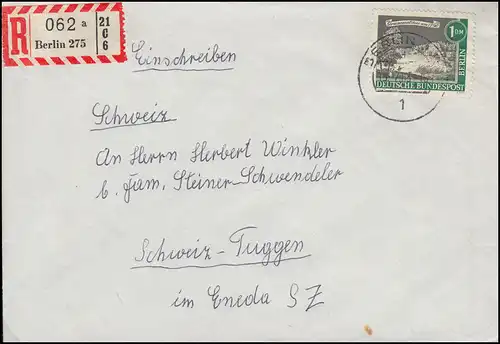 R
062 a
Berlin 275
21
C
6
1 DM
BERLIN
DEUTSCHE BUNDESPOST
1
Einschreiben
Schweiz
An Herrn Herbert Winkler
b. Fam. Steiner-Schwendeler
Schweiz-Tuggen
im Eneda SZ